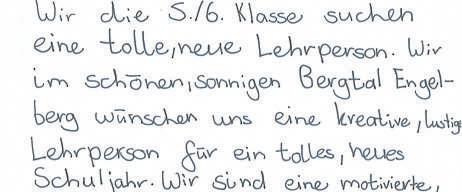 Wir die 5./6. Klasse suchen
eine tolle, neue Lehrperson. Wir
im schönen, sonnigen Bergtal Engel-
berg wünschen uns eine kreative, lustige
Lehrperson für ein tolles, neues
Schuljahr. Wir sind eine motivierte,